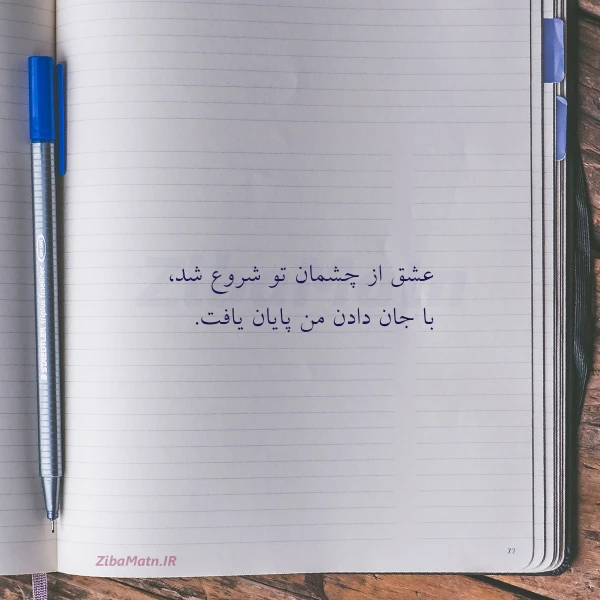 عشق از چشمان تو شروع شد،
با جان دادن من پایان یافت.
ZibaMatn.IR